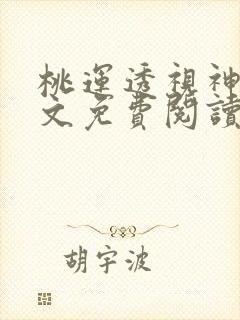 桃運透視神
文免費閱讀
胡宇波